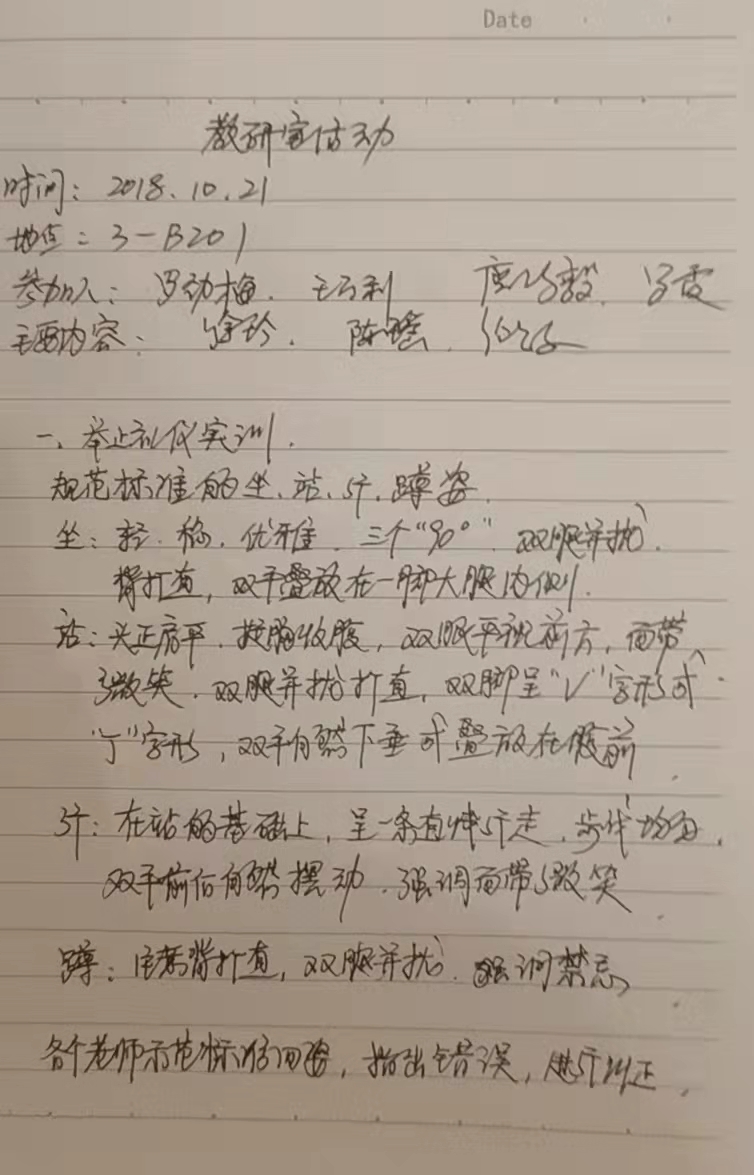 Date
教研室活动
时间：2018.10.21
地点：3-B201
参加人：罗劲梅．王巧利 唐 毅．
主要内容：徐玲．陈瑶．
一、举止礼仪实训．
规范标准的坐、站、行、蹲姿．
坐：轻．稳．优雅．三个“90°”．双腿并拢．
背打直，双手叠放在一脚大腿内侧．
站：头正肩平．挺胸收腹，双眼平视前方，面带
微笑．双腿并拢打直，双脚呈“V”字形或
“丁”字形，双手自然下垂或叠放在腹前．
行：在站的基础上，呈一条直线行走．步伐均匀．
双手前后自然摆动．强调面带微笑．
蹲：背打直，双腿并拢．强调禁忌
各个老师示范标准四姿，指出错误，进行纠正．